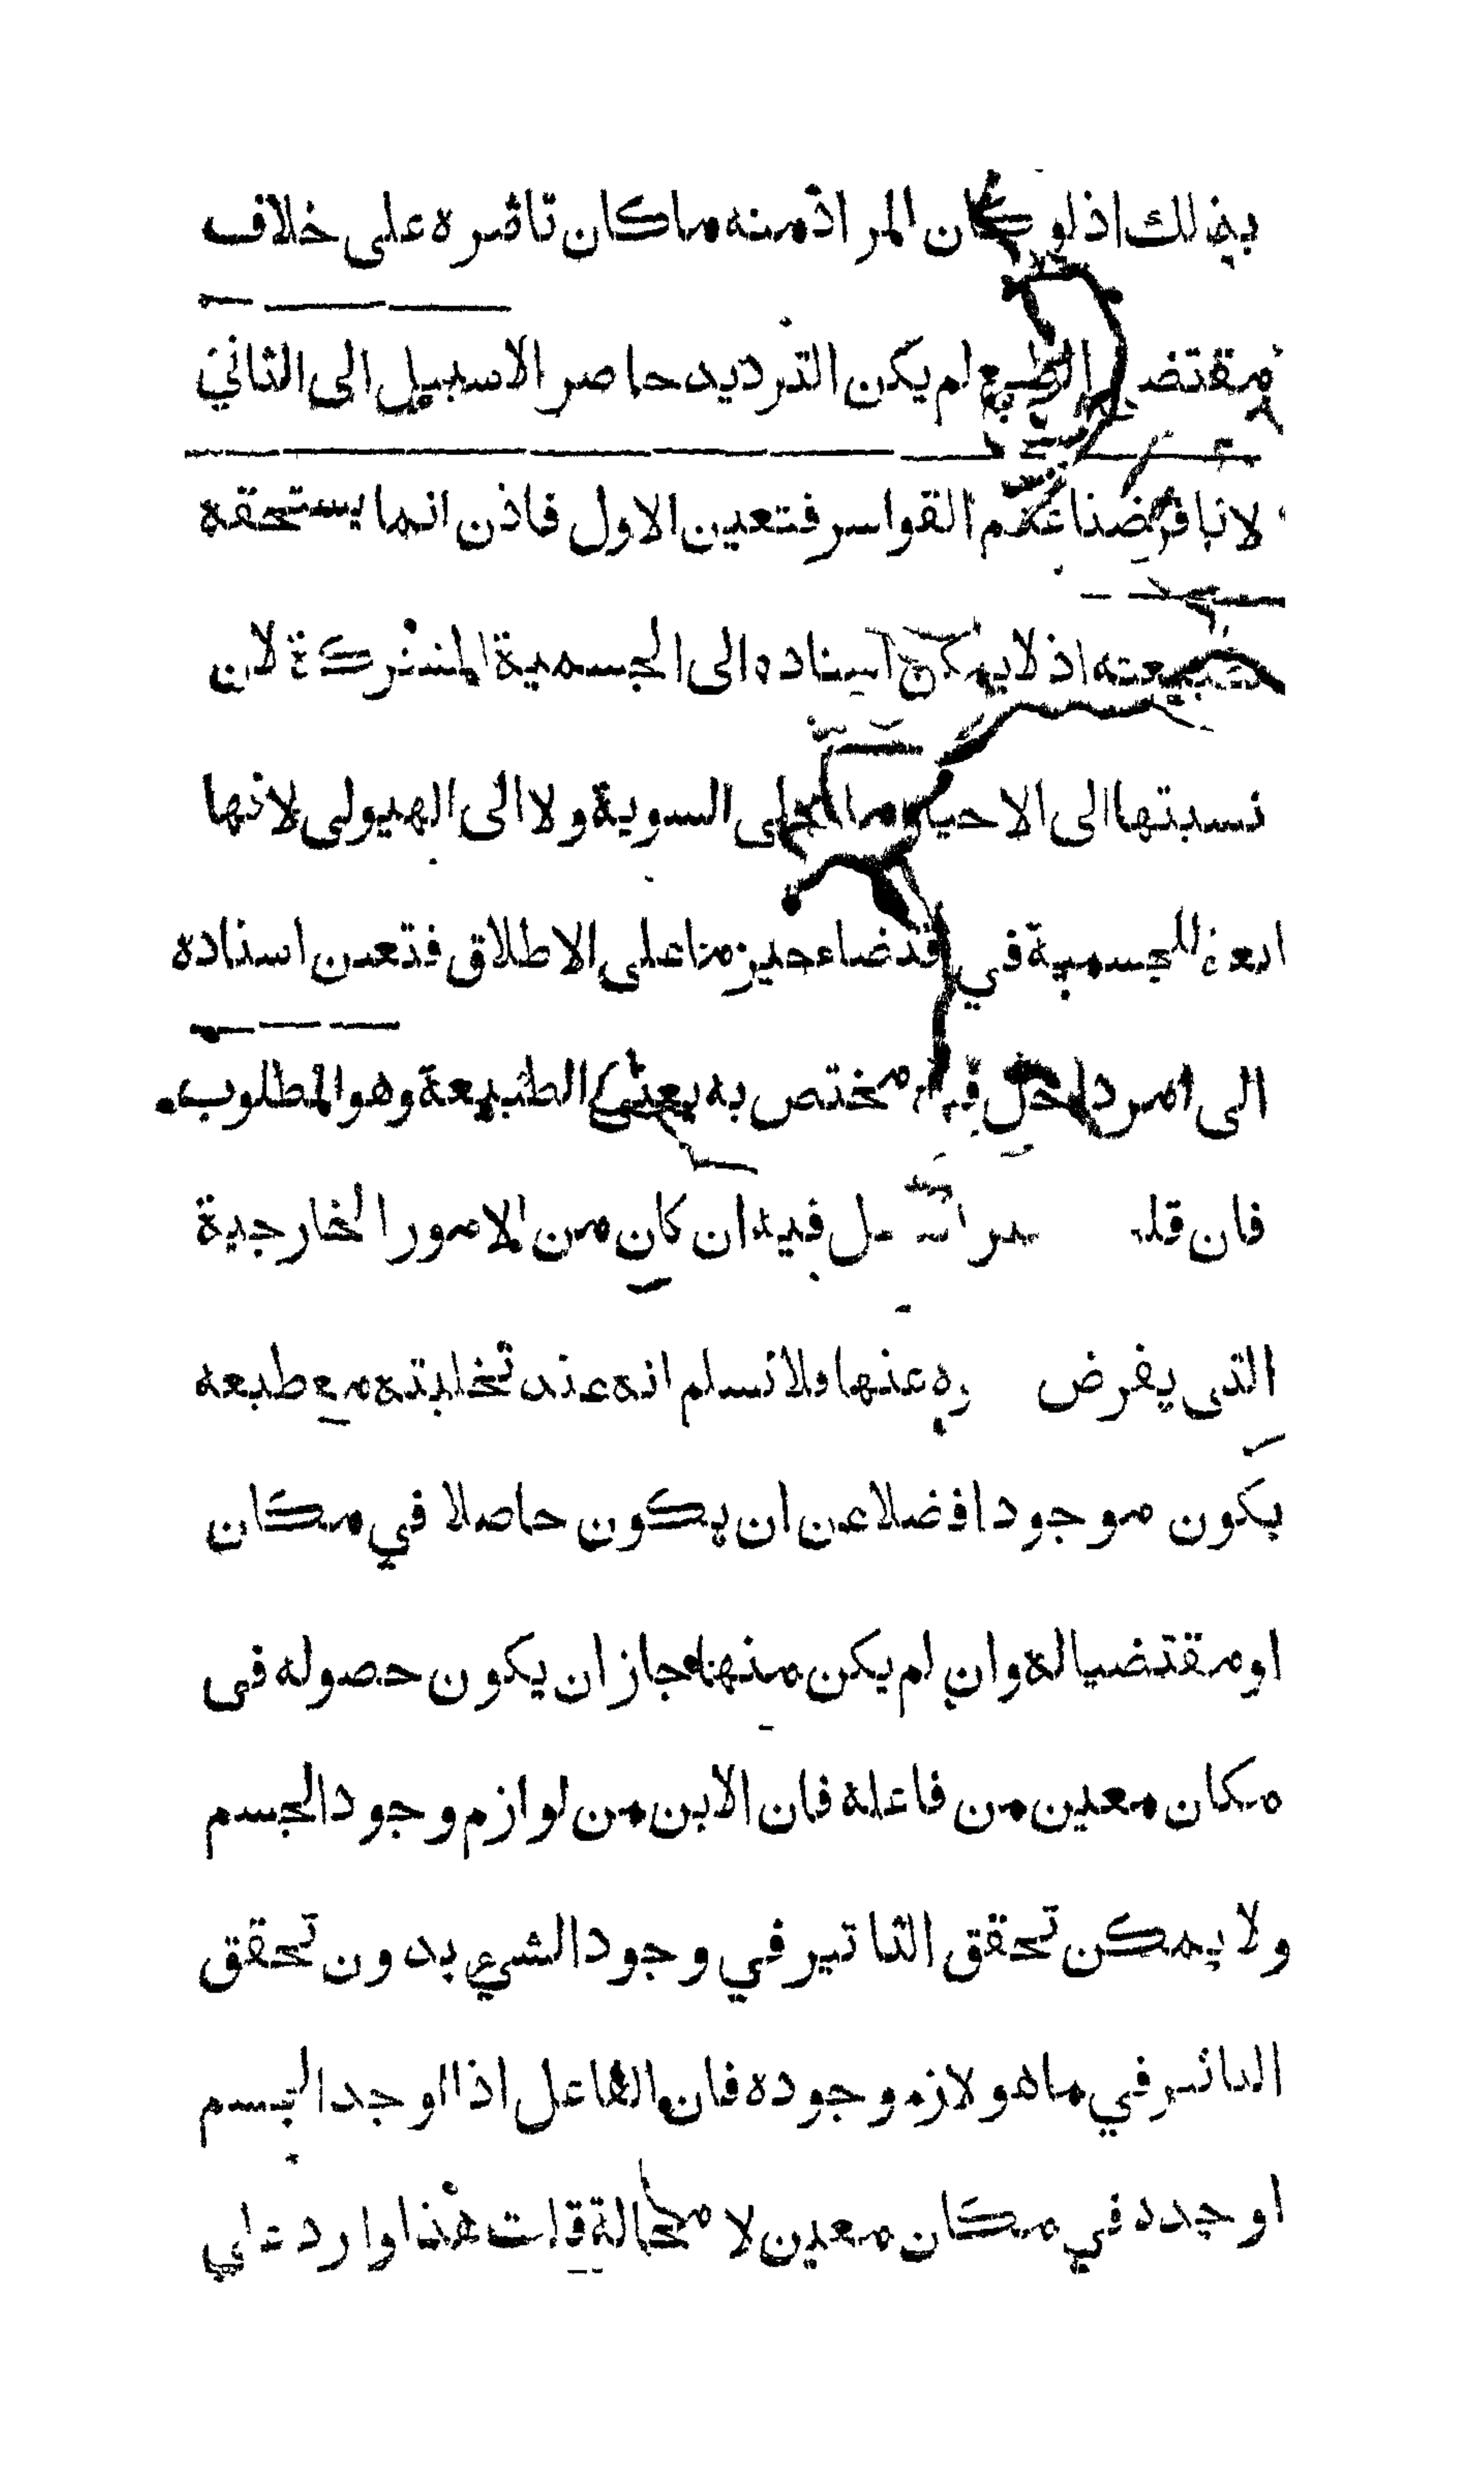 بذلك اذ لو كان المراد منه ما كان تاثيره على خلاف
مقتضى الطبع لم يكن الترديد حاصرا لا سبيل الى الثاني
لانا فرضنا عدم القواسر فتعين الاول فاذن انما يستحقه
طبيعته اذ لا يمكن اسناده الى الجسمية المشتركة لان
نسبتها الى الاحياز على السوية ولا الى الهيولى لانها
تابعة للجسمية في اقتضاء حيز ما على الاطلاق فتعين اسناده
الى امر داخل فيه مختص به يعنى الطبيعة وهو المطلوب
فان قلت فيه ان كان من الامور الخارجية
التى يفرض عنها ولا نسلم انه عند تخليته مع طبعه
يكون موجودا فضلا عن ان يكون حاصلا في مكان
او مقتضيا له وان لم يكن منها جاز ان يكون حصوله فى
مكان معين من فاعله فان الاين من لوازم وجود الجسم
ولا يمكن تحقق التاثير في وجود الشيء بدون تحقق
التاثير في ما هو لازم وجوده فان الفاعل اذا اوجد الجسم
اوجده في مكان معين لا محالة قلت هذا وارد على